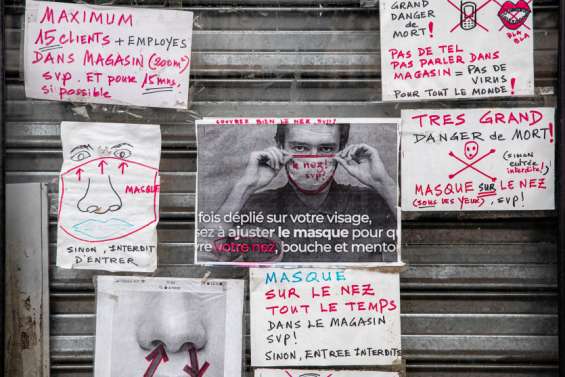 MAXIMUM
15 CLIENTS + EMPLOYES
DANS MAGASIN (200m²)
SVP. ET POUR 15 mns,
si possible
GRAND
DANGER
de
MORT!
BLA
BLA
PAS DE TEL
PAS PARLER DANS
MAGASIN = PAS DE
VIRUS
POUR TOUT LE MONDE !
MASQUE
SINON, INTERDIT
D'ENTRER
COUVREZ BIEN LE NEZ, SVP!
le nez!
svp!
fois déplié sur votre visage,
sez à ajuster le masque pour q
vre votre nez, bouche et mento
TRES GRAND
DANGER de MORT!
(SINON
entrée
interdite!)
MASQUE SUR LE NEZ
(SOUS LES YEUX), SVP!
MASQUE
SUR LE NEZ
TOUT LE TEMPS
DANS LE MAGASIN
SVP!
SINON, ENTREE INTERDITE